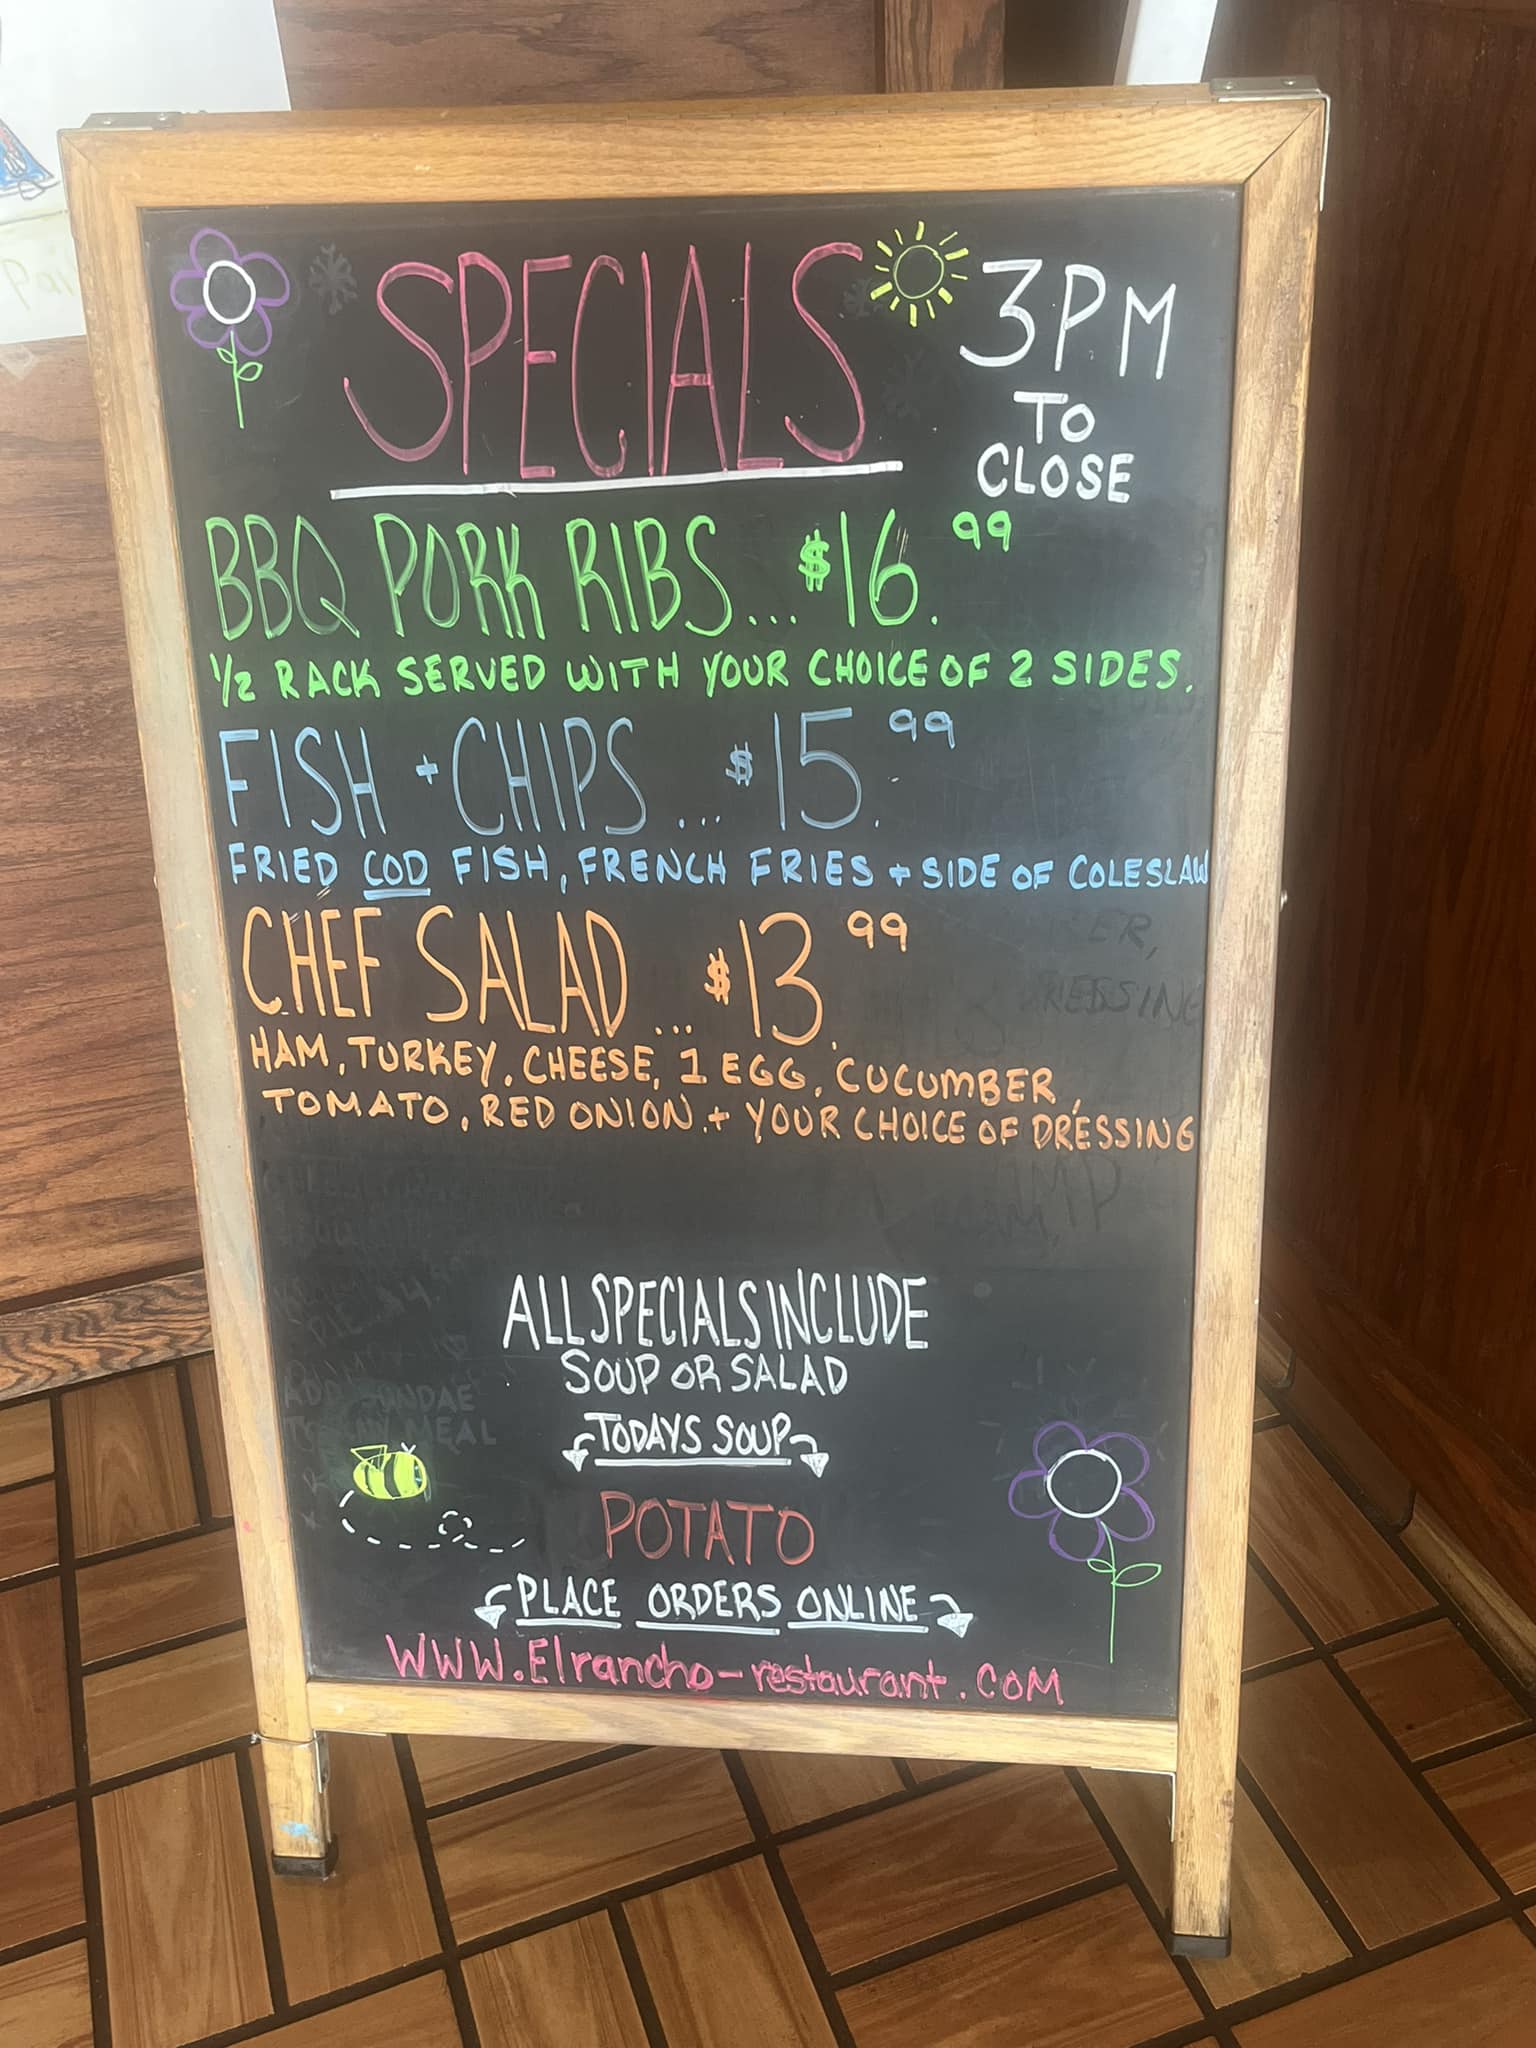 SPECIALS
3PM
TO
CLOSE
BBQ PORK RIBS... $16.99
1/2 RACK SERVED WITH YOUR CHOICE OF 2 SIDES.
FISH + CHIPS... $15.99
FRIED COD FISH, FRENCH FRIES + SIDE OF COLESLAW
CHEF SALAD... $13.99
HAM, TURKEY, CHEESE, 1 EGG, CUCUMBER,
TOMATO, RED ONION + YOUR CHOICE OF DRESSING
ALL SPECIALS INCLUDE
SOUP OR SALAD
TODAYS SOUP
POTATO
PLACE ORDERS ONLINE
WWW.Elrancho-restaurant.COM